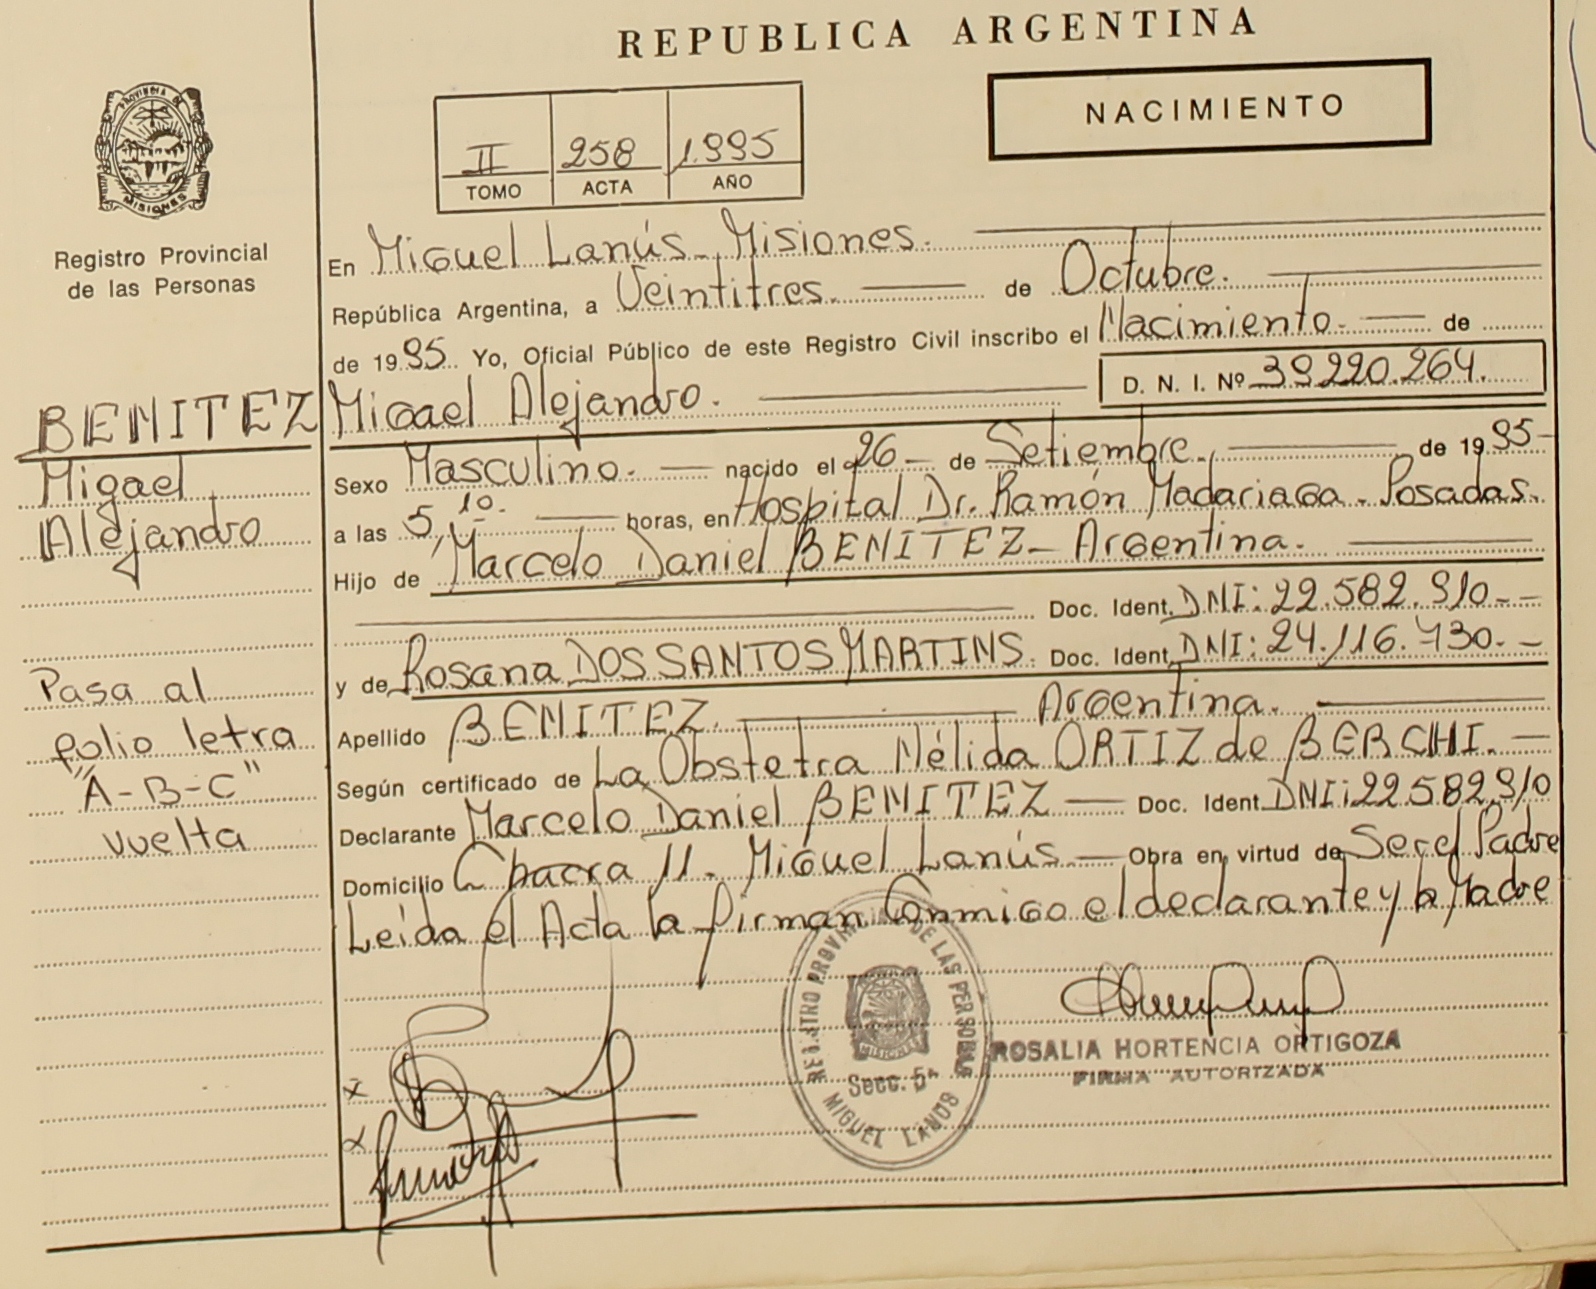 REPUBLICA ARGENTINA
PROVINCIA DE MISIONES
Registro Provincial
de las Personas
II 258 1.995
TOMO ACTA AÑO
NACIMIENTO
En Miguel Lanús - Misiones.
República Argentina, a Veintitres. de Octubre.
de 19 95. Yo, Oficial Público de este Registro Civil inscribo el Nacimiento. de
Migael Alejandro. D. N. I. Nº 39.220.264.
Sexo Masculino. nacido el 26 de Setiembre. de 19 95
a las 5,10. horas, en Hospital Dr. Ramón Madariaga - Posadas.
Hijo de Marcelo Daniel BENITEZ - Argentina.
Doc. Ident. DNI: 22.582.910.-
y de Rosana DOS SANTOS MARTINS. Doc. Ident. DNI: 24.116.730.-
Argentina.
Apellido BENITEZ.
Según certificado de La Obstetra Nélida ORTIZ de BERCHI.
Declarante Marcelo Daniel BENITEZ Doc. Ident. DNI: 22.582.910
Domicilio Chacra 11. Miguel Lanús Obra en virtud de Ser el Padre
Leida el Acta la firman Conmigo el declarante y la Madre
BENITEZ
Migael
Alejandro
Pasa al
folio letra
"A-B-C"
vuelta
REGISTRO PROVINCIAL DE LAS PERSONAS
MISIONES
Secc. 5ª
MIGUEL LANUS
ROSALIA HORTENCIA ORTIGOZA
FIRMA AUTORIZADA
x
x